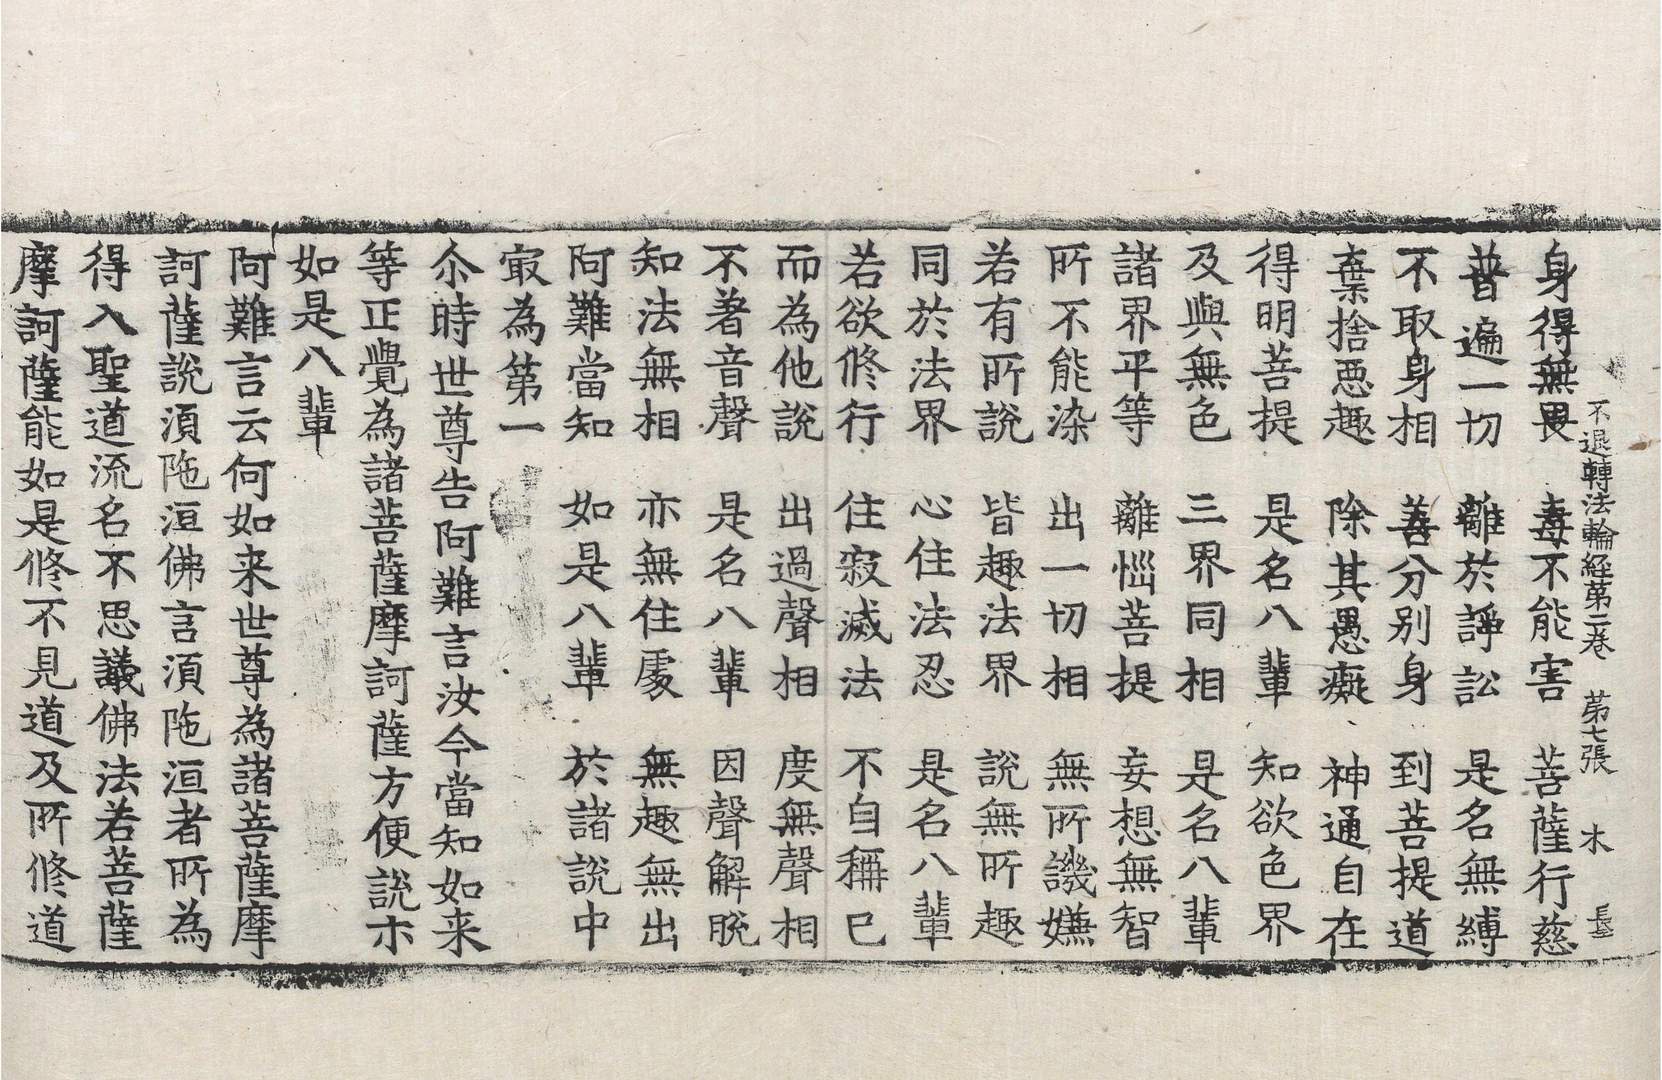 不退轉法輪經第二卷 第七張 木
身得無畏 毒不能害 菩薩行慈
普遍一切 離於諍訟 是名無縛
不取身相 善分別身 到菩提道
棄捨惡趣 除其愚癡 神通自在
得明菩提 是名八輩 知欲色界
及與無色 三界同相 是名八輩
諸界平等 離惱菩提 妄想無智
所不能染 出一切相 無所譏嫌
若有所說 皆趣法界 說無所趣
同於法界 心住法忍 是名八輩
若欲修行 住寂滅法 不自稱已
而為他說 出過聲相 度無聲相
不著音聲 是名八輩 因聲解脫
知法無相 亦無住處 無趣無出
阿難當知 如是八輩 於諸說中
冣為第一
尒時世尊告阿難言汝今當知如来
等正覺為諸菩薩摩訶薩方便說示
如是八輩
阿難言云何如来世尊為諸菩薩摩
訶薩說湏陁洹佛言湏陁洹者所為
得入聖道流名不思議佛法若菩薩
摩訶薩能如是修不見道及所修道